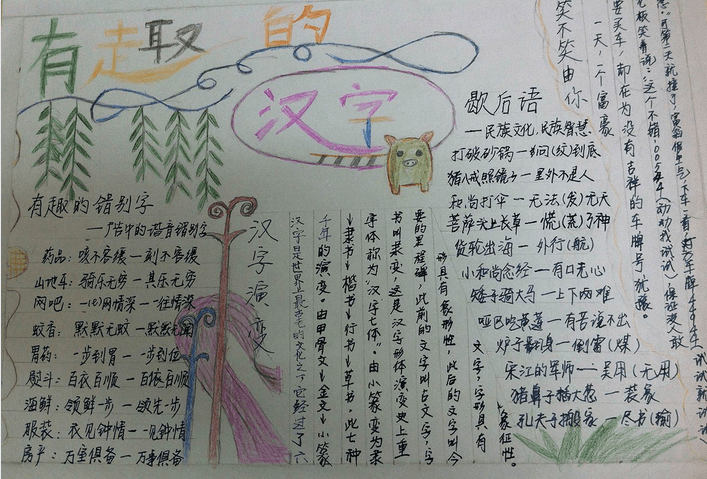 有趣的
汉字
有趣的错别字
药品：咳不容缓一刻不容缓
山地车：骑乐无穷一其乐无穷
网吧：一(e)网情深一往情深
蚊香：默默无蚊一默默无闻
胃药：一步到胃一步到位
熨斗：百衣百顺一百依百顺
海鲜：领鲜一步一领先一步
服装：衣见钟情一见钟情
房产：万室俱备一万事俱备
汉字演变
汉字是世界上最古老的文化之一，它经过了六
千年的演变。由甲骨文→金文→小篆
→隶书→楷书→行书→草书，此七种
字体称为“汉字七体”。由小篆变为隶
书叫隶变。这是汉字形体演变史上重
要的里程碑，此前的文字叫古文字，字
形具有象形性，此后的文字叫今
文字，字形具有
象征性。
歇后语
一民族文化，民族智慧
打破砂锅一问(纹)到底
猪八戒照镜子一里外不是人
和尚打伞一无法(发)无天
菩萨头上长草一慌(荒)了神
货轮出海一外行(航)
小和尚念经一有口无心
矮子骑大马一上下两难
哑巴吃黄莲一有苦说不出
炉子翻身一倒霉(煤)
宋江的军师一吴用(无用)
猪鼻子插大葱一装象
孔夫子搬家一尽书(输)
笑不笑由你
一天，一个富豪
要买车，却在为没有吉祥的车牌号犹豫。
老板笑着说：“这个不错：00544(动动我试试)，保证没人敢